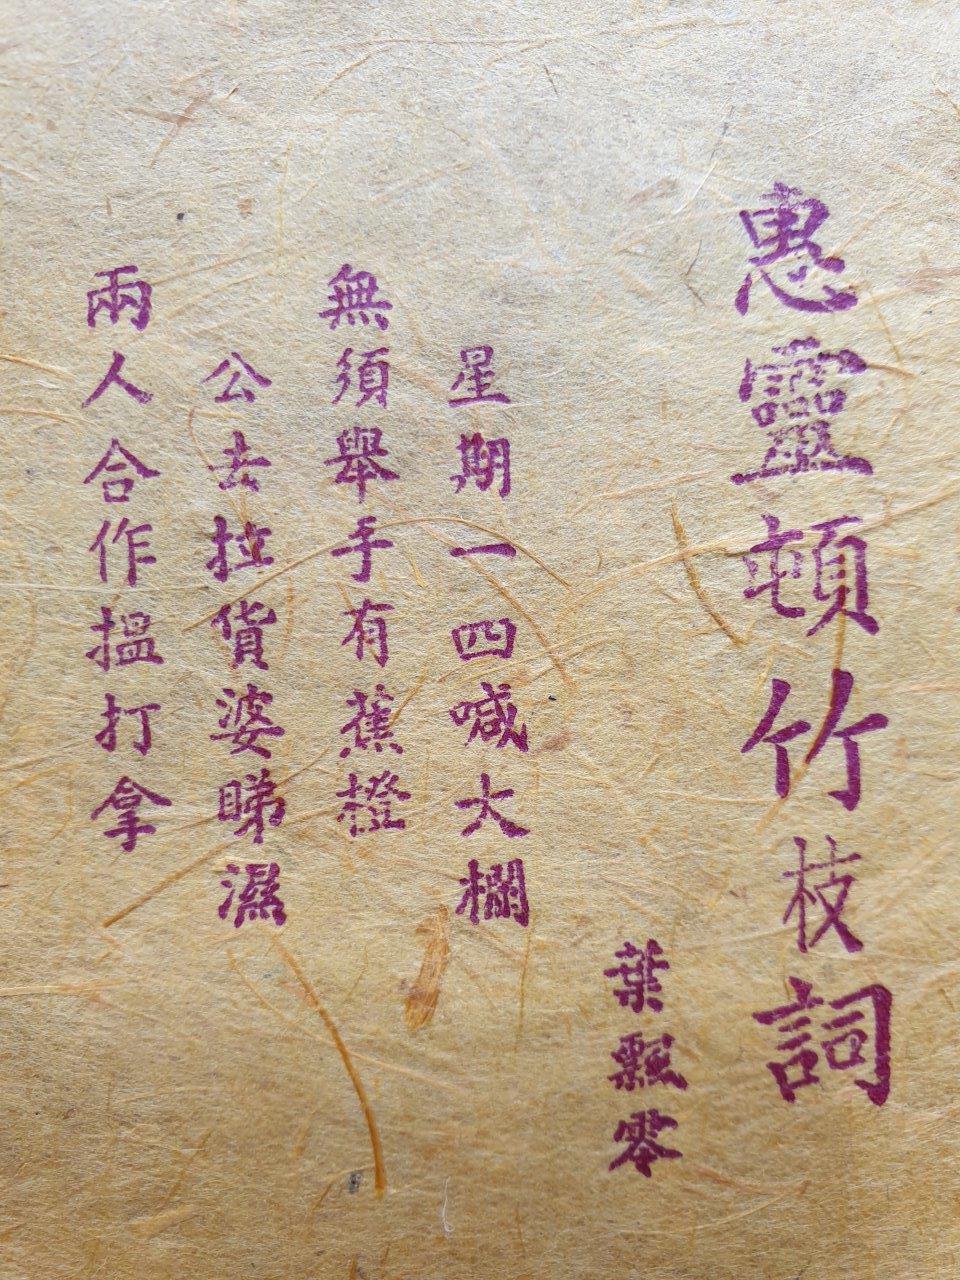 惠靈頓竹枝詞
葉飄零
星期一四喊大欄
無須舉手有蕉橙
公去拉貨婆睇濕
兩人合作搵打拿